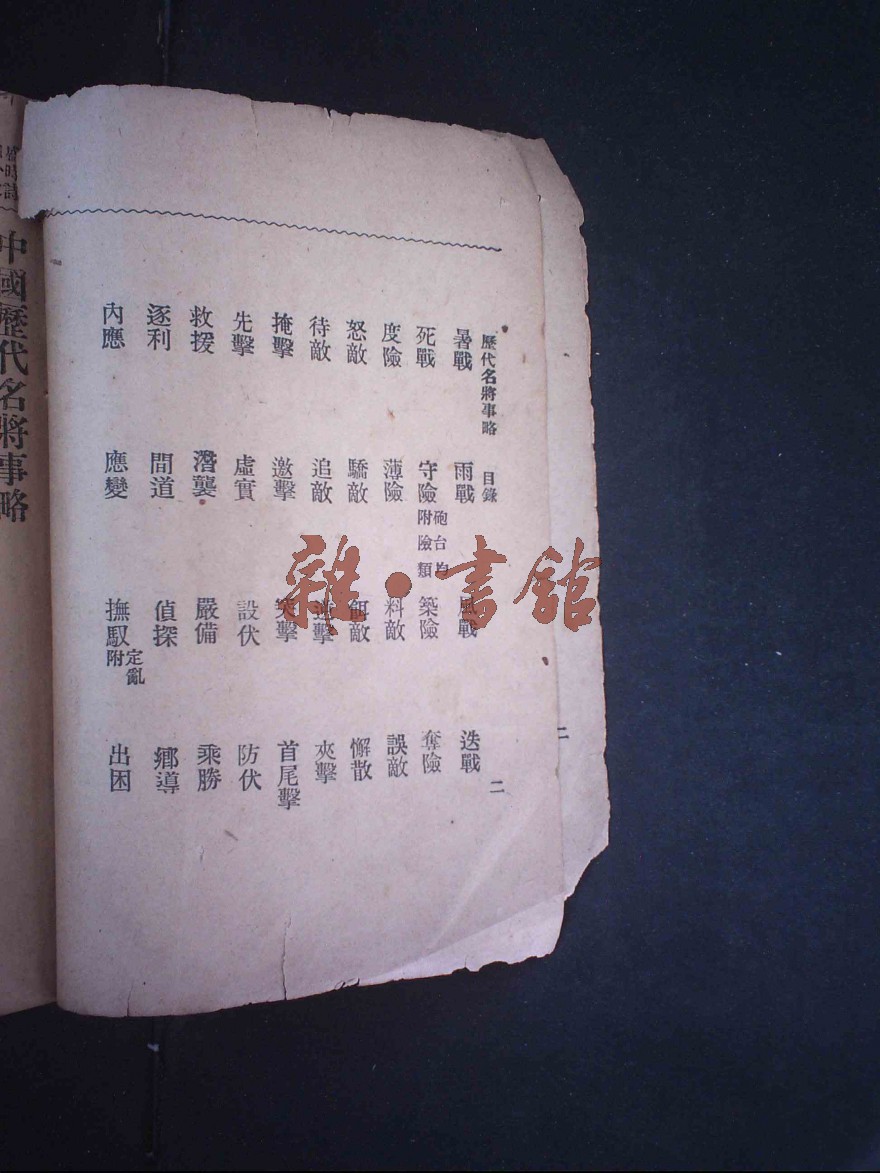 歷代名將事略　目錄　二
暑戰　雨戰　風戰　迭戰
死戰　守險砲台均附險類　築險　奪險
度險　薄險　料敵　誤敵
怒敵　驕敵　餌敵　懈散
待敵　追敵　逆擊　夾擊
掩擊　邀擊　突擊　首尾擊
先擊　虛實　設伏　防伏
救援　潛襲　嚴備　乘勝
逐利　間道　偵探　鄉導
內應　應變　撫馭定亂附　出困
二
中國歷代名將事略
雜·書館